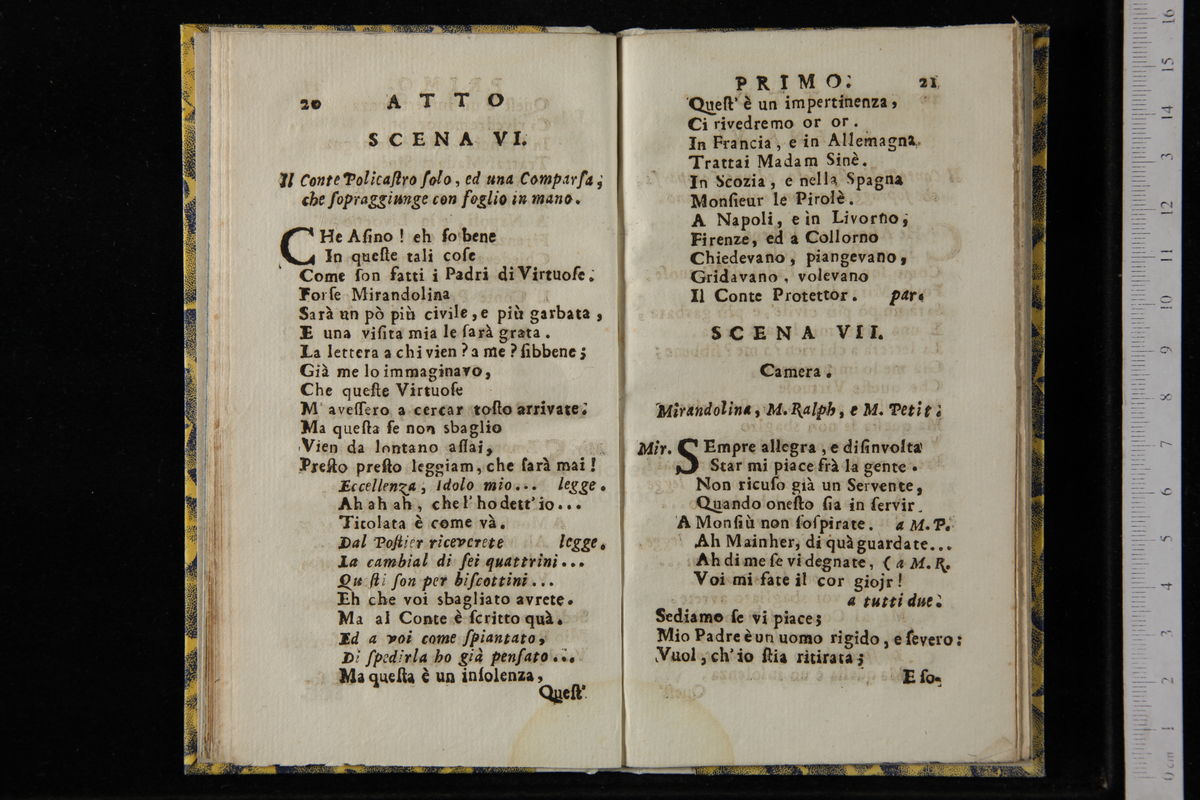 20 ATTO
SCENA VI.
Il Conte Policaſtro ſolo, ed una Comparſa;
che ſopraggiunge con foglio in mano.
CHe Aſino! eh ſo bene
In queſte tali coſe
Come ſon fatti i Padri di Virtuoſe.
Forſe Mirandolina
Sarà un pò più civile, e più garbata,
E una viſita mia le ſarà grata.
La lettera a chi vien? a me? ſibbene;
Già me lo immaginavo,
Che queſte Virtuoſe
M' aveſſero a cercar toſto arrivate.
Ma queſta ſe non sbaglio
Vien da lontano aſſai,
Preſto preſto leggiam, che ſarà mai!
Eccellenza, Idolo mio... legge.
Ah ah ah, che l' ho dett' io...
Titolata è come và.
Dal Poſtier riceverete legge.
La cambial di ſei quattrini...
Qu ſti ſon per biſcottini...
Eh che voi sbagliato avrete.
Ma al Conte è ſcritto quà.
Ed a voi come ſpiantato,
Di ſpedirla ho già penſato...
Ma queſta è un inſolenza,
Queſt'
PRIMO. 21
Queſt' è un impertinenza,
Ci rivedremo or or.
In Francia, e in Allemagna
Trattai Madam Sinè.
In Scozia, e nella Spagna
Monſieur le Pirolè.
A Napoli, e in Livorno,
Firenze, ed a Collorno
Chiedevano, piangevano,
Gridavano, volevano
Il Conte Protettor. par.
SCENA VII.
Camera.
Mirandolina, M. Ralph, e M. Petit.
Mir. SEmpre allegra, e diſinvolta
Star mi piace frà la gente.
Non ricuſo già un Servente,
Quando oneſto ſia in ſervir.
A Monſiù non ſoſpirate. a M. P.
Ah Mainher, di quà guardate...
Ah di me ſe vi degnate, (a M. R.
Voi mi fate il cor giojr!
a tutti due.
Sediamo ſe vi piace;
Mio Padre è un uomo rigido, e ſevero:
Vuol, ch' io ſtia ritirata;
E ſo-
0 cm 1 2 3 4 5 6 7 8 9 10 11 12 13 14 15 16